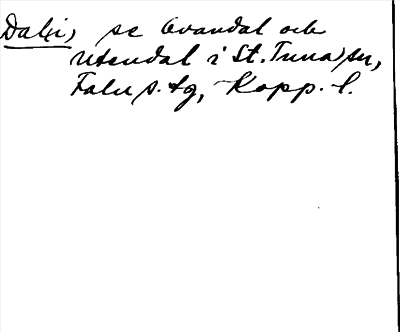 Dal(i), se Ovandal och
Utendal i St. Tuna sn,
Falu s. tg, Kopp. l.